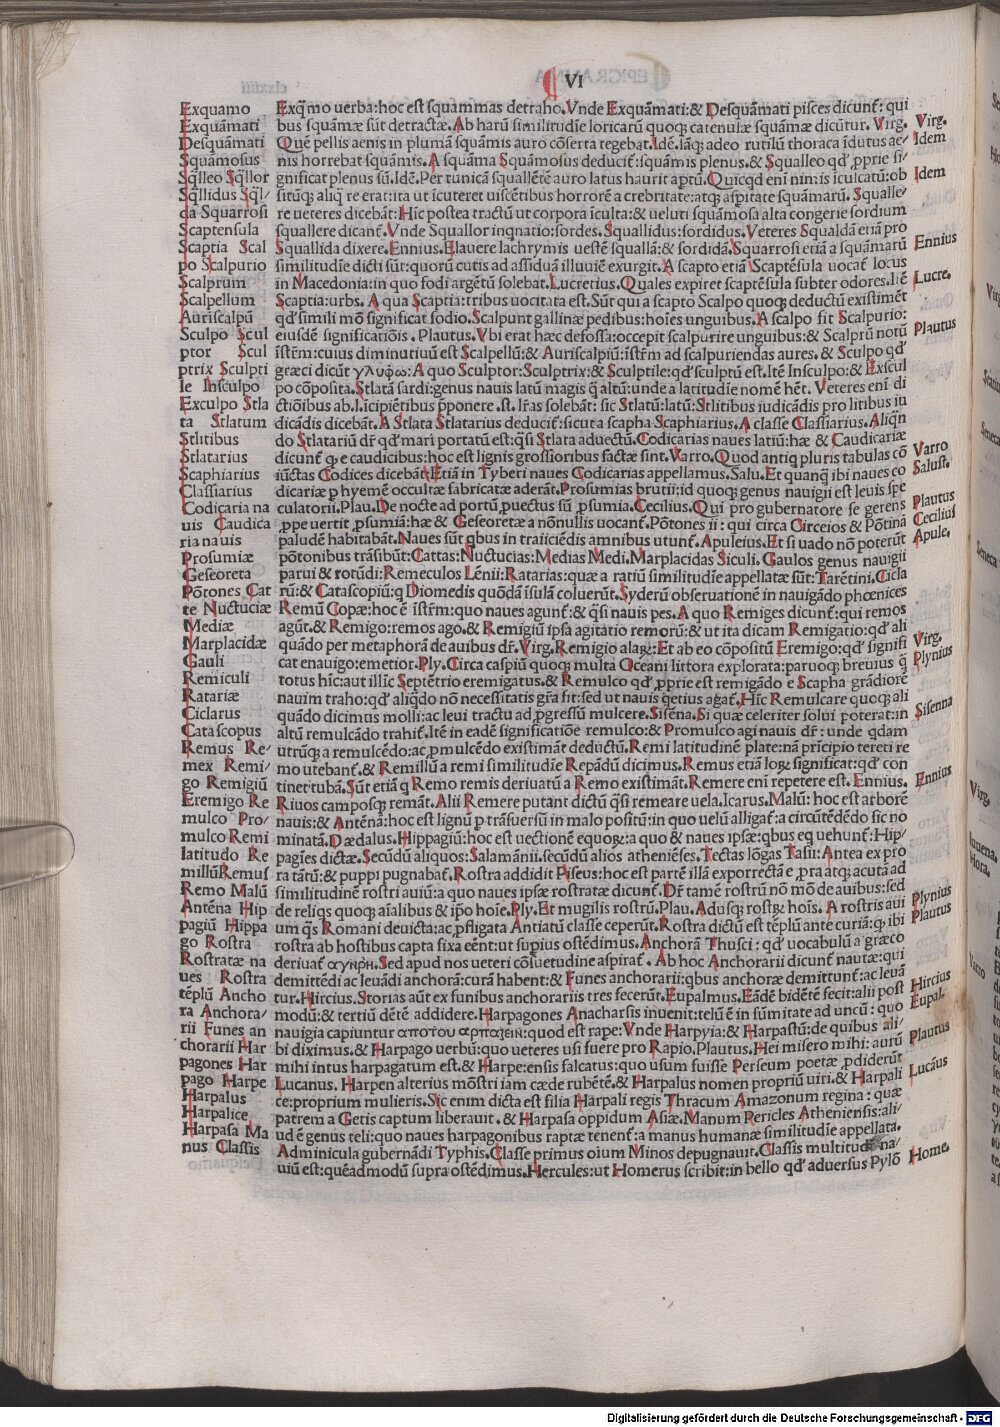 VI
Exquamo
Exquāmati
Desquāmati
Squāmosus
Sq̄lleo Sq̄llor
Sq̄llidus Sq̄l⸗
da Squarrosi
Scaptensula
Scaptia Scal
po Scalpurio
Scalprum
Scalpellum
Auriscalpū
Sculpo Scul
ptor Scul
ptrix Sculpti
le Insculpo
Exculpo Stla
ta Stlatum
Stlitibus
Stlatarius
Scaphiarius
Classiarius
Codicaria na
uis Caudica
ria nauis
Prosumiæ
Geseoreta
Pōtones Cat
te Nuctuciæ
Mediæ
Marplacidæ
Gauli
Remiculi
Ratariæ
Ciclarus
Catascopus
Remus Re⸗
mex Remi⸗
go Remigiū
Eremigo Re
mulco Pro⸗
mulco Remi
latitudo Re
millū Remus
Remo Malū
Antēna Hip
pagiū Hippa
go Rostra
Rostratæ na
ues Rostra
tēplū Ancho
ra Anchora⸗
rii Funes an
chorarii Har
pagones Har
pago Harpe
Harpalus
Harpalice
Harpasa Ma
nus Classis
Exq̄mo uerba: hoc est squammas detraho. Vnde Exquāmati: & Desquāmati pisces dicunt̄: qui
bus squāmæ sūt detractæ. Ab harū similitudīe loricarū quoq; catenulæ squāmæ dicūtur. Virg.
Quē pellis aenis in plumā squāmis auro cōserta tegebat. Idē. Iāq; adeo rutilū thoraca īdutus ae⸗
nis horrebat squāmis. A squāma Squāmosus deducit̄: squāmis plenus. & Squalleo qd̄ ,pprie si⸗
gnificat plenus sū. Idē. Per tunicā squallētē auro latus haurit aptū. Quicqd enī nimis iculcatū: ob
sitūq; aliq̄ re erat: ita ut īcuteret uiscētibus horrorē a crebritate: atq; aspitate squāmarū. Squalle⸗
re ueteres dicebāt: Hīc postea tractū ut corpora īculta: & ueluti squāmosa alta congerie sordium
squallere dicant̄. Vnde Squallor īnqnatio: sordes. Squallidus: sordidus. Veteres Squaldā etiā pro
Squallida dixere. Ennius. Elauere lachrymis uestē squallā: & sordidā. Squarrosi etiā a squāmarū
similitudīe dicti sūt: quorū cutis ad assiduā illuuiē exurgit. A scapto etiā Scaptēsula uocat̄ locus
in Macedonia: in quo fodi argētū solebat. Lucretius. Quales expiret scaptēsula subter odores. Itē
Scaptia: urbs. A qua Scaptia: tribus uocitata est. Sūt qui a scapto Scalpo quoq; deductū existimēt
qd̄ simili mō significat fodio. Scalpunt gallinæ pedibus: hoīes unguibus. A scalpo fit Scalpurio:
eiusdē significatiōis. Plautus. Vbi erat hæc defossa: occepit scalpurire unguibus: & Scalprū notū
īstrm̄: cuius diminutiuū est Scalpellū: & Auriscalpiū: īstrm̄ ad scalpuriendas aures. & Sculpo qd̄
græci dicūt γλυφω: A quo Sculptor: Sculptrix: & Sculptile: qd̄ sculptū est. Itē Insculpo: & Exscul
po cōposita. Stlatā sardi: genus nauis latū magis q̄ altū: unde a latitudīe nomē hēt. Veteres enī di
ctiōibus ab. l. icipiētibus p̄ponere .st. lr̄as solebāt: sic Stlatū: latū: Stlitibus iudicādis pro litibus iu
dicādis dicebāt. A Stlata Stlatarius deducit̄: sicut a scapha Scaphiarius. A classe Classiarius. Aliqn̄
do Stlatariū dr̄ qd̄ mari portatū est: q̄si Stlata aduectū. Codicarias naues latiū: hæ & Caudicariæ
dicunt̄ q; e caudicibus: hoc est lignis grossioribus factæ sint. Varro. Quod antiq pluris tabulas cō
iūctas Codices dicebāt. Etiā in Tyberi naues Codicarias appellamus. Salu. Et quanq̄ ibi naues co
dicariæ p hyemē occultæ fabricatæ aderāt. Prosumias brutii: id quoq; genus nauigii est leuis spe
culatorii. Plau. De nocte ad portū ,puectus sū ,psumia. Cecilius. Qui pro gubernatore se gerens
,ppe uertit ,psumiā: hæ & Geseoretæ a nōnullis uocant̄. Pōtones ii: qui circa Circeios & Pōtinā
paludē habitabāt. Naues sūt qbus in traiiciēdis amnibus utunt̄. Apuleius. Et si uado nō poterūt
pōtonibus trāsibūt: Cattas: Nuctucias: Medias Medi. Marplacidas Siculi. Gaulos genus nauigii
parui & rotūdi: Remeculos Lēnii: Ratarias: quæ a ratiū similitudīe appellatæ sūt: Tarētini. Cicla
rū: & Catascopiū: q Diomedis quōdā īsulā coluerūt. Syderū obseruationē in nauigādo phœnices
Remū Copæ: hoc ē īstrm̄: quo naues agunt̄: & q̄si nauis pes. A quo Remiges dicunt̄: qui remos
agūt. & Remigo: remos ago. & Remigiū ipsa agitatio remorū: & ut ita dicam Remigatio: qd̄ ali
quādo per metaphorā de auibus dr̄. Virg. Remigio alaꝝ: Et ab eo cōpositū Eremigo: qd̄ signifi
cat enauigo: emetior. Ply. Circa caspiū quoq; multa Oceani littora explorata: paruoq; breuius q̄
totus hīc: aut illīc Septētrio eremigatus. & Remulco qd̄ ,pprie est remigādo e Scapha grādiorē
nauim traho: qd̄ aliq̄do nō necessitatis gr̄a fit: sed ut nauis qetius agat̄. Hīc Remulcare quoq; ali
quādo dicimus molli: ac leui tractu ad ,pgressū mulcere. Sisēna. Si quæ celeriter solui poterat: in
altū remulcādo trahit̄. Itē in eadē significatiōe remulco: & Promulco agi nauis dr̄: unde qdam
utrūq; a remulcēdo: ac ,pmulcēdo existimāt deductū. Remi latitudinē plate: nā pricipio tereti re
mo utebant̄. & Remillū a remi similitudīe Repādū dicimus. Remus etiā loꝝ significat: qd̄ con
tinet tubā. Sūt etiā q Remo remis deriuatū a Remo existimāt. Remere enī repetere est. Ennius.
Riuos camposq; remāt. Alii Remere putant dictū q̄si remeare uela. Icarus. Malū: hoc est arborē
nauis: & Antēnā: hoc est lignū p trāsuersū in malo positū: in quo uelū alligat̄: a circūtēdēdo sic no
minatā. Dædalus. Hippagiū: hoc est uectionē equoꝝ: a quo & naues ipsæ: qbus eq uehunt̄: Hip⸗
pagīes dictæ. Secūdū aliquos: Salamānii. secūdū alios atheniēses. Tectas lōgas Tasii: Antea ex pro
ra tātū: & puppi pugnabat̄. Rostra addidit Piseus: hoc est partē illā exporrectā e ,pra atq; acutā ad
similitudinē rostri auiū: a quo naues ipsæ rostratæ dicunt̄. Dr̄ tamē rostrū nō mō de auibus: sed
de reliqs quoq; aialibus & ip̄o hoīe. Ply. Et mugilis rostrū. Plau. Adusq; rostꝝ hoīs. A rostris aui
um qs Romani deuicta: ac ,pfligata Antiatū classe ceperūt. Rostra dictū est tēplū ante curiā: q; ibi
rostra ab hostibus capta fixa eēnt: ut supius ostēdimus. Anchorā Thusci: qd̄ uocabulū a græco
deriuat̄ αγκυρη. Sed apud nos ueteri cōsuetudine aspirat̄. Ab hoc Anchorarii dicunt̄ nautæ: qui
demittēdi ac leuādi anchorā: curā habent: & Funes anchorarii: qbus anchoræ demittunt̄: ac leuā
tur. Hircius. Storias aūt ex funibus anchorariis tres fecerūt. Eupalmus. Eādē bidētē fecit: alii post
modū: & tertiū dētē addidere. Harpagones Anacharsis inuenit: telū ē in sūmitate ad uncū: quo
nauigia capiuntur αποτου αρπαζειν: quod est rape: Vnde Harpyia: & Harpastū: de quibus ali⸗
bi diximus. & Harpago uerbū: quo ueteres usi fuere pro Rapio. Plautus. Hei misero mihi: aurū
mihi intus harpagatum est. & Harpe: ensis falcatus: quo usum fuisse Perseum poetæ ,pdiderūt
Lucanus. Harpen alterius mōstri iam cæde rubētē. & Harpalus nomen propriū uiri. & Harpali
ce: proprium mulieris. Sic enim dicta est filia Harpali regis Thracum Amazonum regina: quæ
patrem a Getis captum liberauit. & Harpasa oppidum Asiæ. Manum Pericles Atheniensis: ali⸗
ud ē genus teli: quo naues harpagonibus raptæ tenent̄: a manus humanæ similitudīe appellata.
Adminicula gubernādi Typhis. Classe primus oium Minos depugnauit. Classis multitudo na⸗
uiū est: quēadmodū supra ostēdimus. Hercules: ut Homerus scribit: in bello qd̄ aduersus Pylō
Virg.
Idem
Idem
Ennius
Lucre.
Plautus
Varro
Salust.
Plautus
Cecilius
Apule.
Virg.
Plynius
Sisenna
Ennius
Plynius
Plautus
Hircius
Eupal.
Plautus
Lucāus
Home.
Digitalisierung gefördert durch die Deutsche Forschungsgemeinschaft - DFG